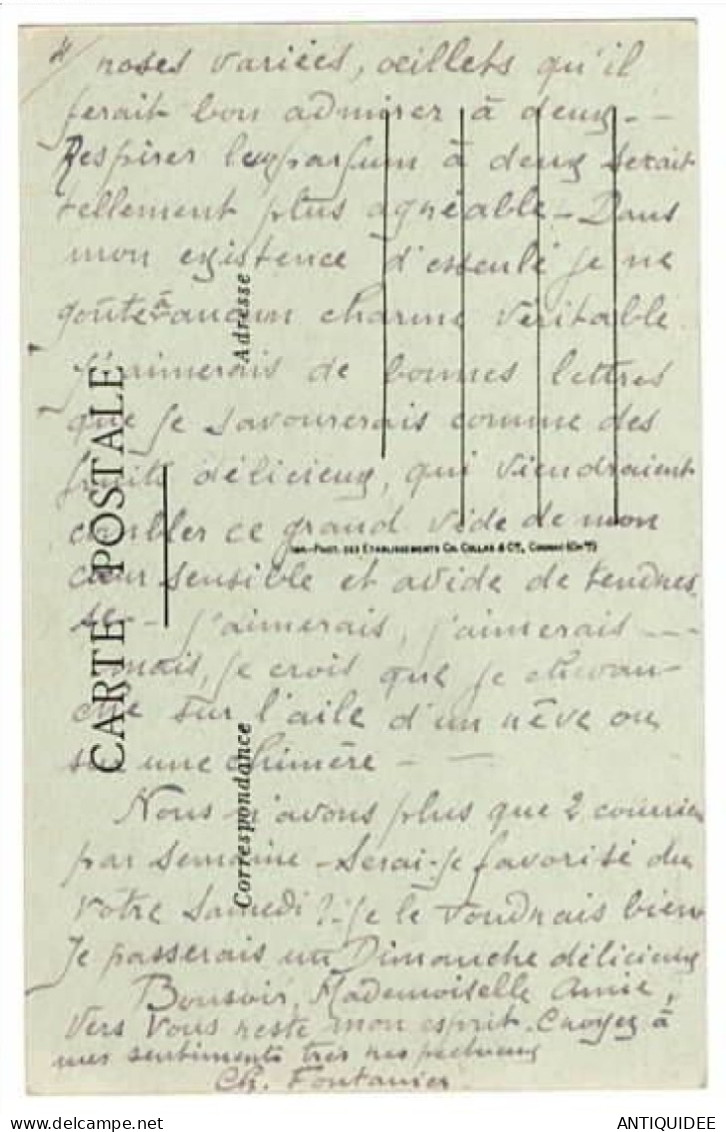 4/ roses variées, oeillets qu'il
ferait bon admirer à deux. -
Respirer leur parfum à deux serait
tellement plus agréable - Dans
mon existence d'esseulé je ne
goûte à aucun charme véritable
J'aimerais de bonnes lettres
que je savourerais comme des
fruits délicieux, qui viendraient
combler ce grand vide de mon
coeur sensible et avide de tendres
se - j'aimerais, j'aimerais - -
mais, je crois que je chevau-
che sur l'aile d'un rêve ou
sur une chimère - -
Nous n'avons plus que 2 courriers
par semaine - Serai-je favorisé du
votre Samedi ? - Je le voudrais bien
Je passerais un Dimanche délicieux
Bonsoir, Mademoiselle Amie,
Vers Vous reste mon esprit. Croyez à
mes sentiments très respectueux
Ch. Fontanier
CARTE POSTALE
Correspondance
Adresse
PHOT. DES ETABLISSEMENTS CH. COLLAS & Cie, COGNAC
ANTIQUIDEE